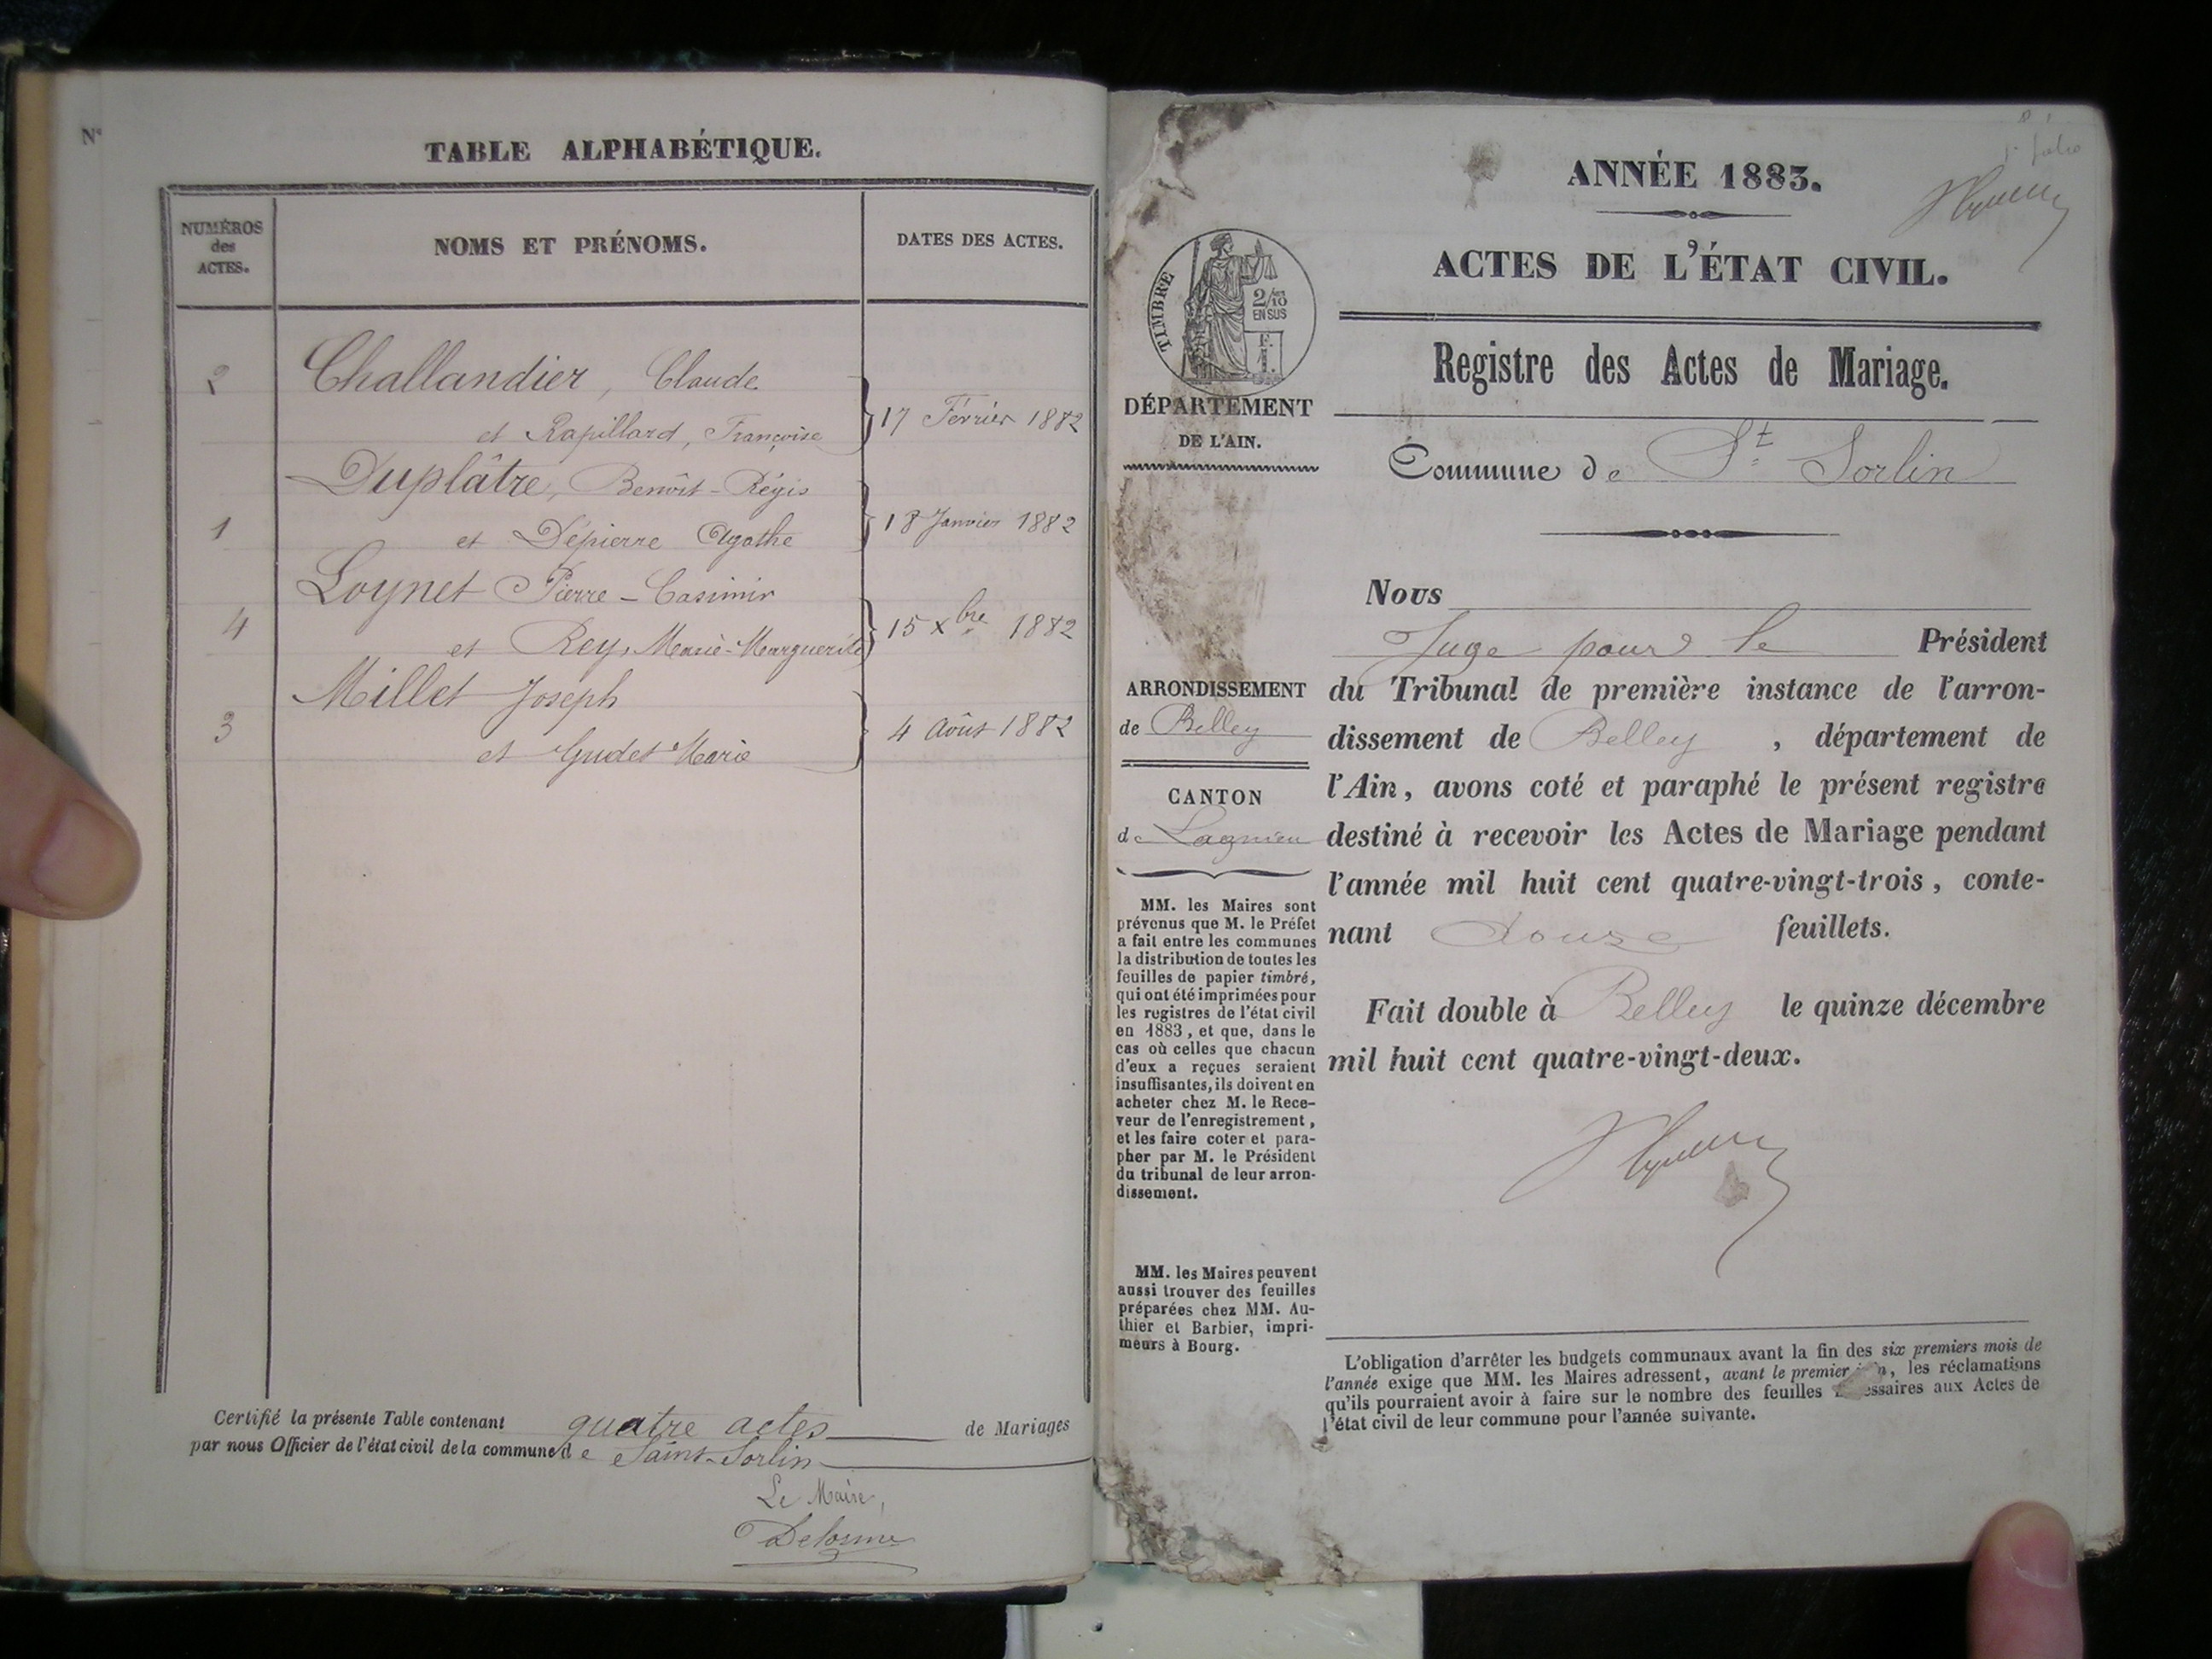 N°
TABLE ALPHABÉTIQUE.
NUMÉROS
des
ACTES.
NOMS ET PRÉNOMS.
DATES DES ACTES.
2
Challandier, Claude
et Rapillard, Françoise
17 Février 1882
Duplâtre, Benoît-Régis
1
et Dépierre Agathe
18 Janvier 1882
Loynet Pierre-Casimir
4
et Rey, Marie-Marguerite
15 Xbre 1882
Millet Joseph
3
et Gudet Marie
4 Août 1882
Certifié la présente Table contenant quatre actes de Mariages
par nous Officier de l'état civil de la commune de Saint-Sorlin
Le Maire,
Delorme
ANNÉE 1883.
ACTES DE L'ÉTAT CIVIL.
TIMBRE
2/10
EN SUS
F.
1.
Registre des Actes de Mariage.
DÉPARTEMENT
DE L'AIN.
Commune de St Sorlin
Nous
Juge pour le Président
du Tribunal de première instance de l'arron-
dissement de Belley, département de
l'Ain, avons coté et paraphé le présent registre
destiné à recevoir les Actes de Mariage pendant
l'année mil huit cent quatre-vingt-trois, conte-
nant douze feuillets.
Fait double à Belley le quinze décembre
mil huit cent quatre-vingt-deux.
ARRONDISSEMENT
de Belley
CANTON
de Lagnieu
MM. les Maires sont
prévenus que M. le Préfet
a fait entre les communes
la distribution de toutes les
feuilles de papier timbré,
qui ont été imprimées pour
les registres de l'état civil
en 1883, et que, dans le
cas où celles que chacun
d'eux a reçues seraient
insuffisantes, ils doivent en
acheter chez M. le Rece-
veur de l'enregistrement,
et les faire coter et para-
pher par M. le Président
du tribunal de leur arron-
dissement.
MM. les Maires peuvent
aussi trouver des feuilles
préparées chez MM. Au-
thier et Barbier, impri-
meurs à Bourg.
L'obligation d'arrêter les budgets communaux avant la fin des six premiers mois de
l'année exige que MM. les Maires adressent, avant le premier les réclamations
qu'ils pourraient avoir à faire sur le nombre des feuilles aux Actes de
l'état civil de leur commune pour l'année suivante.